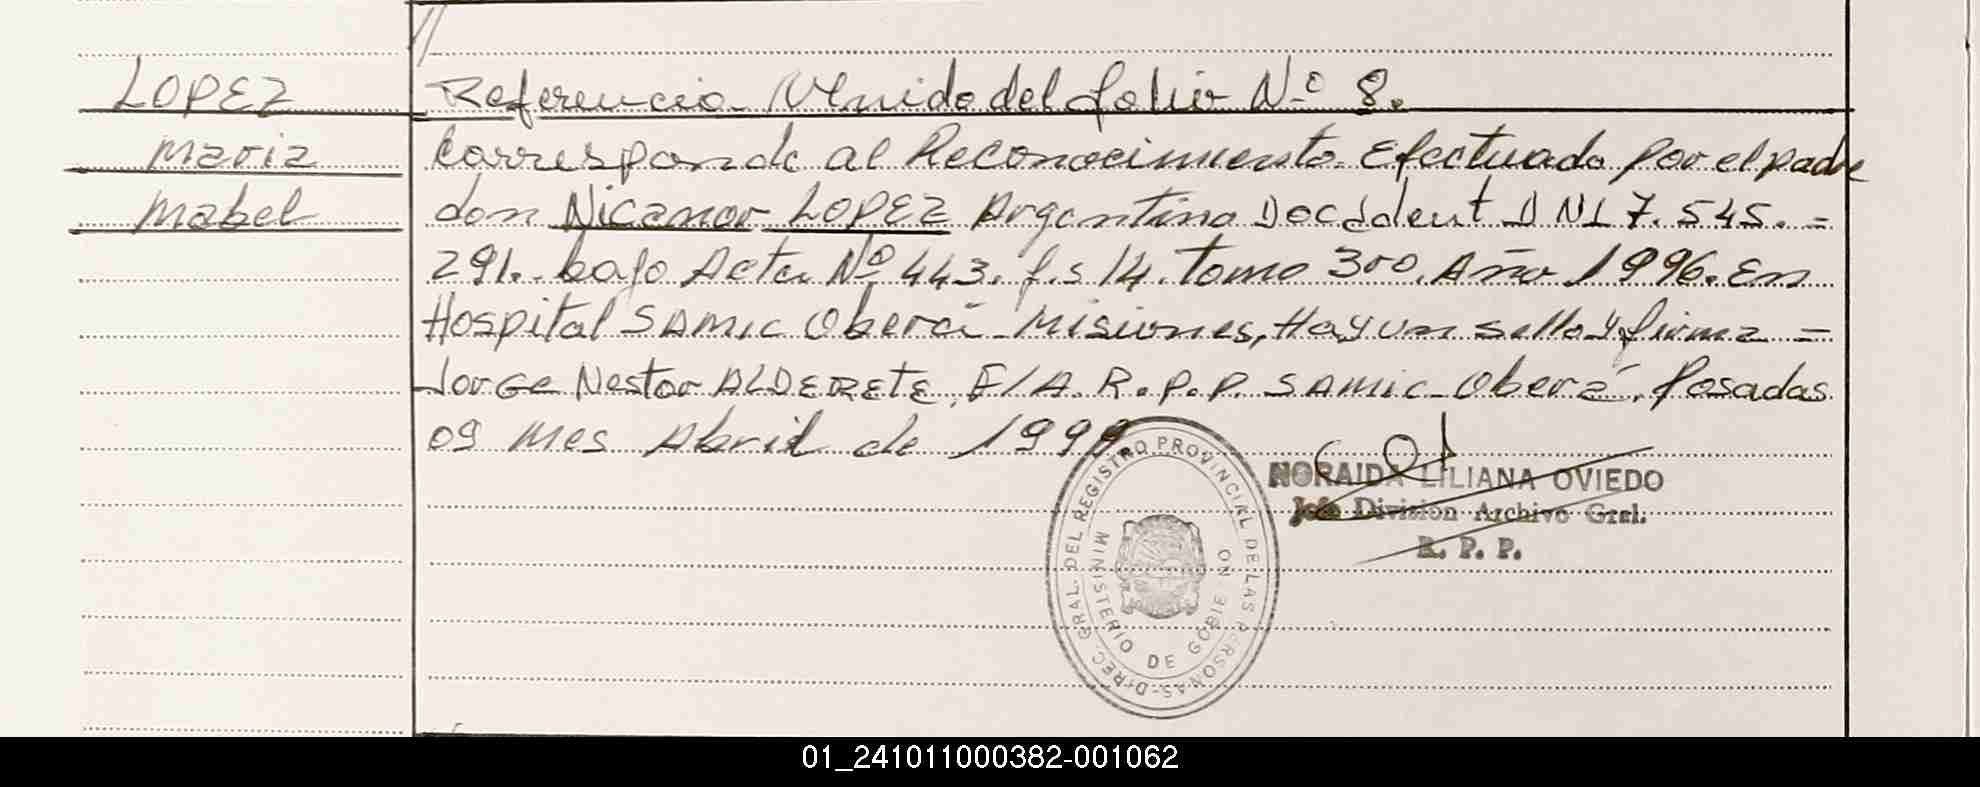 LOPEZ
Maria
Mabel
Referencia Venido del folio Nº 8.
Corresponde al Reconocimiento Efectuado por el padre
don Nicanor LOPEZ Argentino Doc Ident DNI 7.545.=
291. bajo Acta Nº 443. f.s 14. tomo 300. Año 1996. En
Hospital SAMIC Oberá Misiones, Hay un sello y firma =
Jorge Nestor ALDERETE, E/A. R.P.P. SAMIC-Oberá. Posadas
09 Mes Abril de 1999.
DIREC. GRAL. DEL REGISTRO PROVINCIAL DE LAS PERSONAS
MINISTERIO DE GOBIERNO
NORAIDA LILIANA OVIEDO
Jefe División Archivo Gral.
R. P. P.
01_241011000382-001062